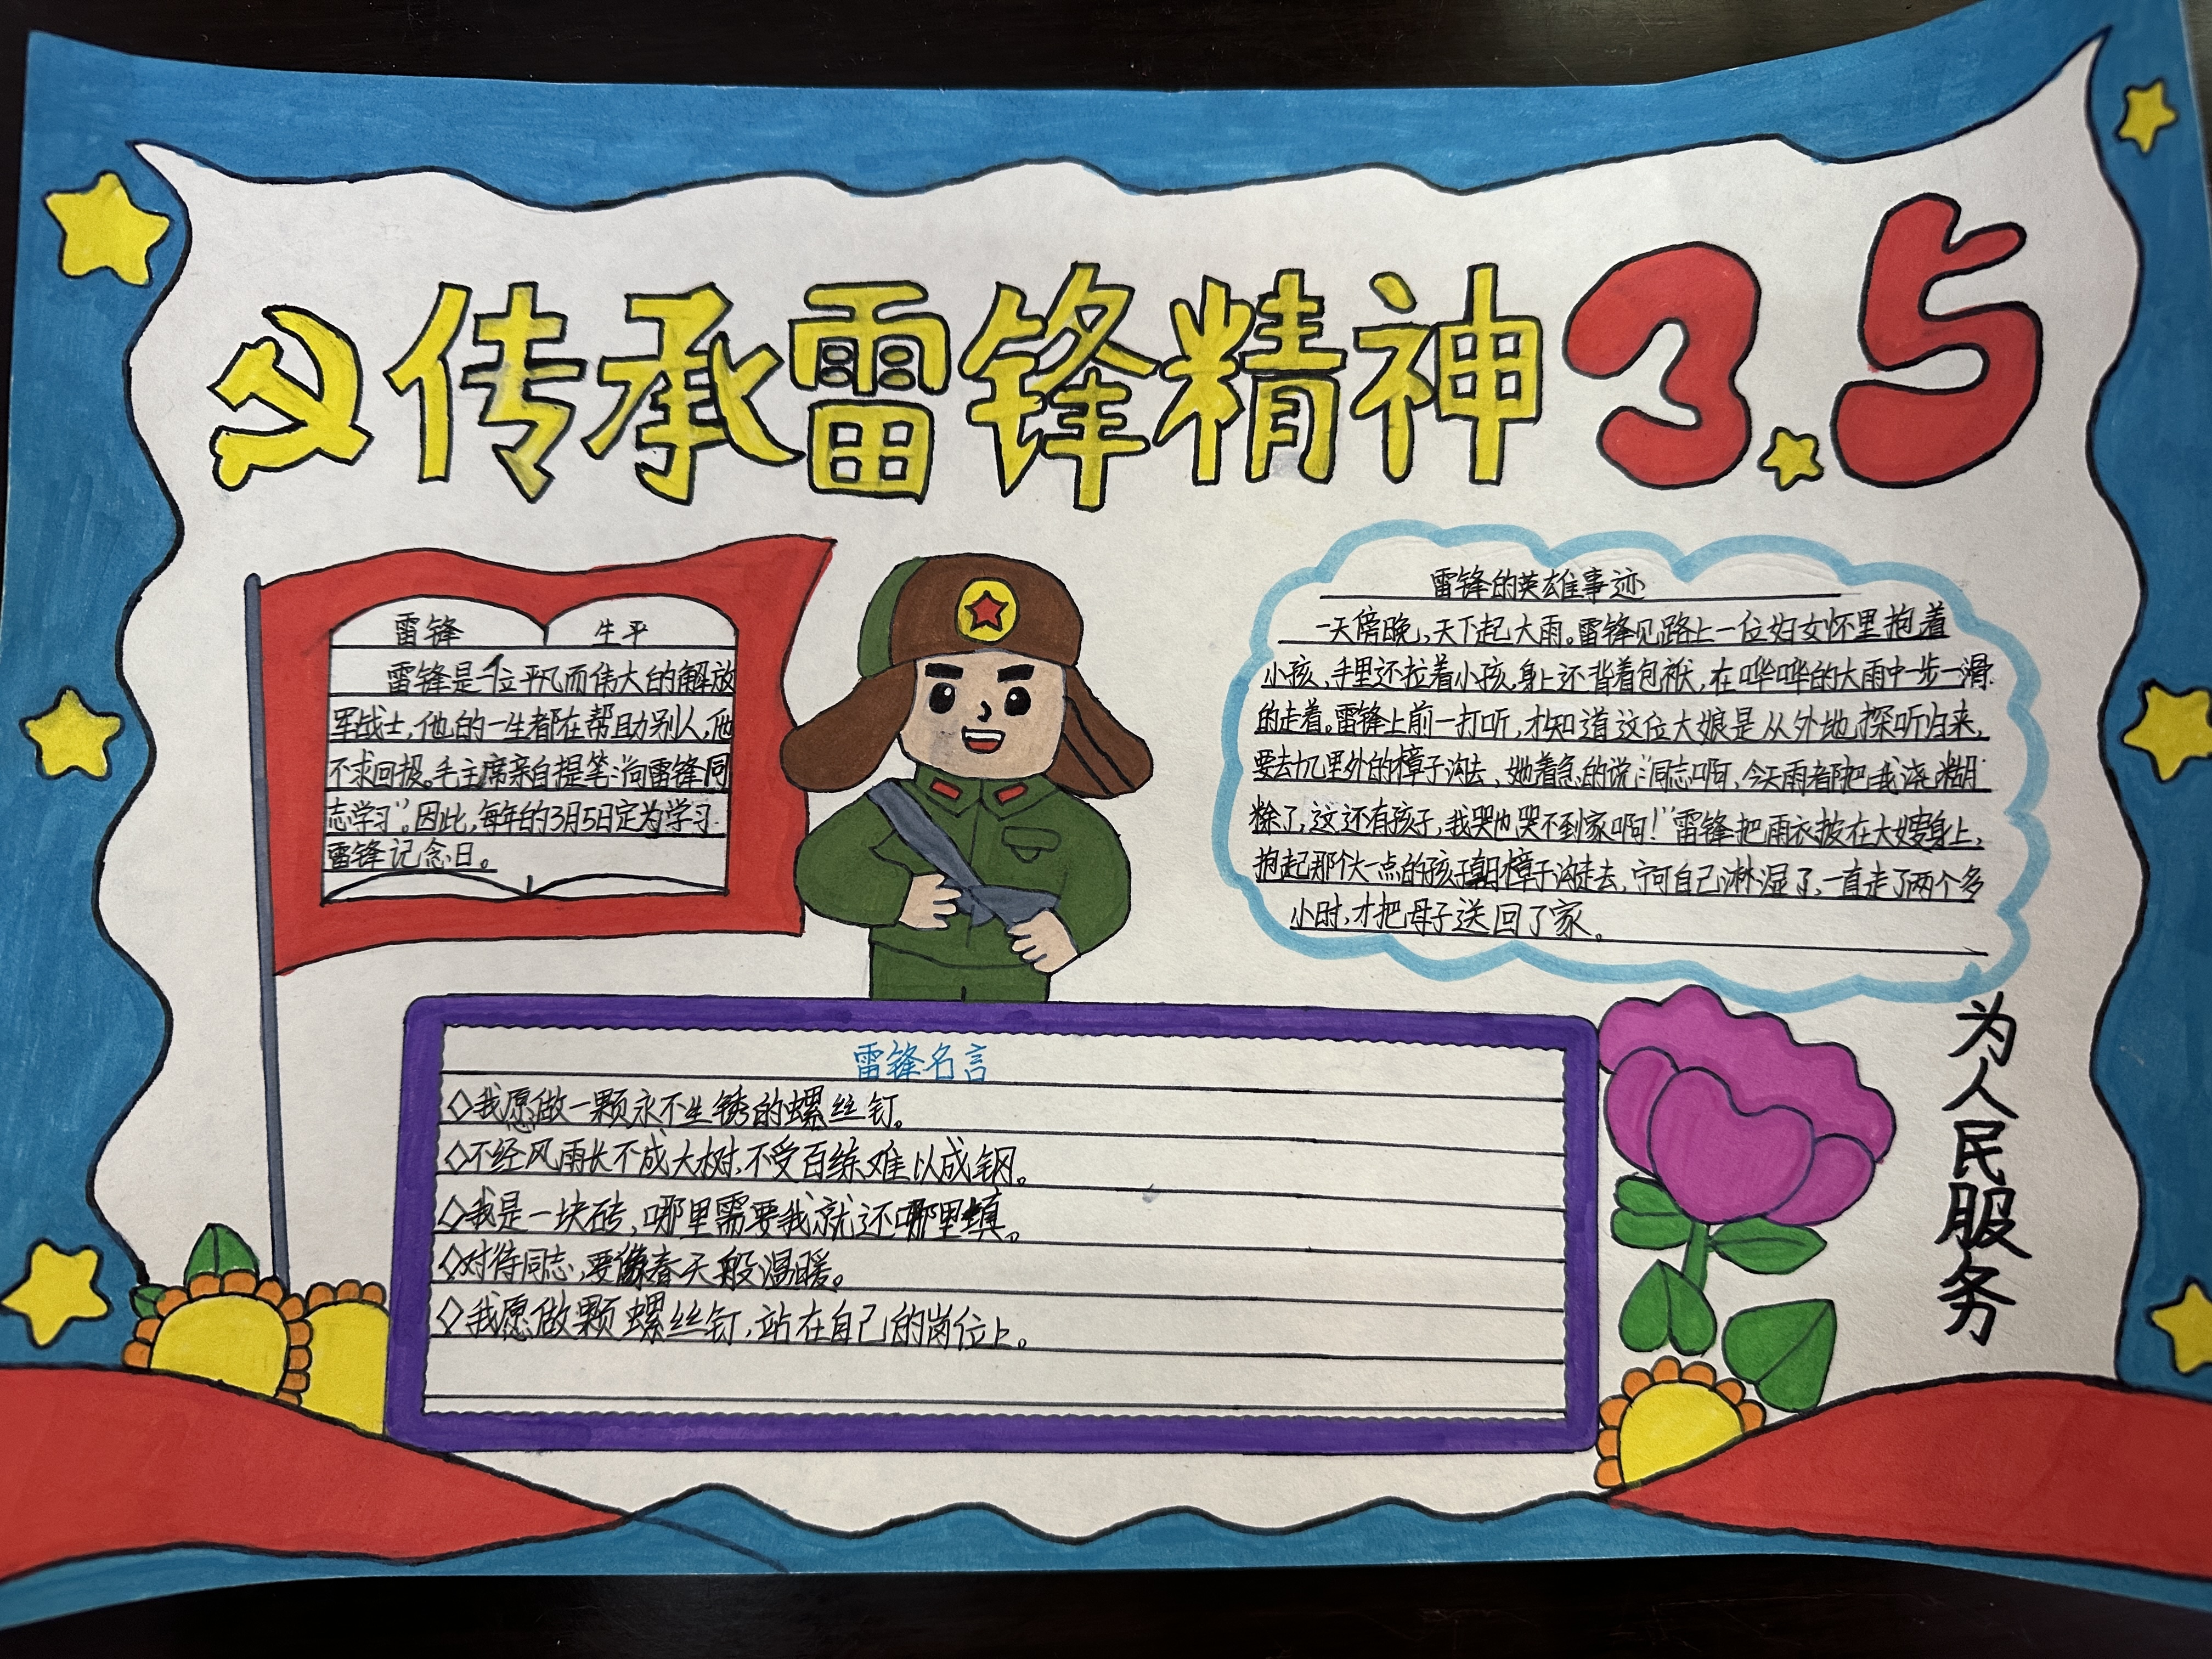 传承雷锋精神 3.5
雷锋 生平
雷锋是一位平凡而伟大的解放
军战士,他的一生都在帮助别人,他
不求回报。毛主席亲自提笔:“向雷锋同
志学习”。因此,每年的3月5日定为学习
雷锋记念日。
雷锋的英雄事迹
一天傍晚,天下起大雨。雷锋见路上一位妇女怀里抱着
小孩,手里还拉着小孩,身上还背着包袱,在哗哗的大雨中一步一滑
的走着。雷锋上前一打听,才知道这位大娘是从外地探听归来,
要去十几里外的樟子沟去,她着急的说:“同志啊,今天雨都把我浇糊
除了,这还有孩子,我哭也哭不到家啊!”雷锋把雨衣披在大嫂身上,
抱起那个大一点的孩子朝樟子沟走去,宁可自己淋湿了,一直走了两个多
小时,才把母子送回了家。
雷锋名言
◇我愿做一颗永不生锈的螺丝钉。
◇不经风雨长不成大树,不受百练难以成钢。
◇我是一块砖,哪里需要我就还哪里填。
◇对待同志,要像春天般温暖。
◇我愿做颗螺丝钉,站在自己的岗位上。
为人民服务